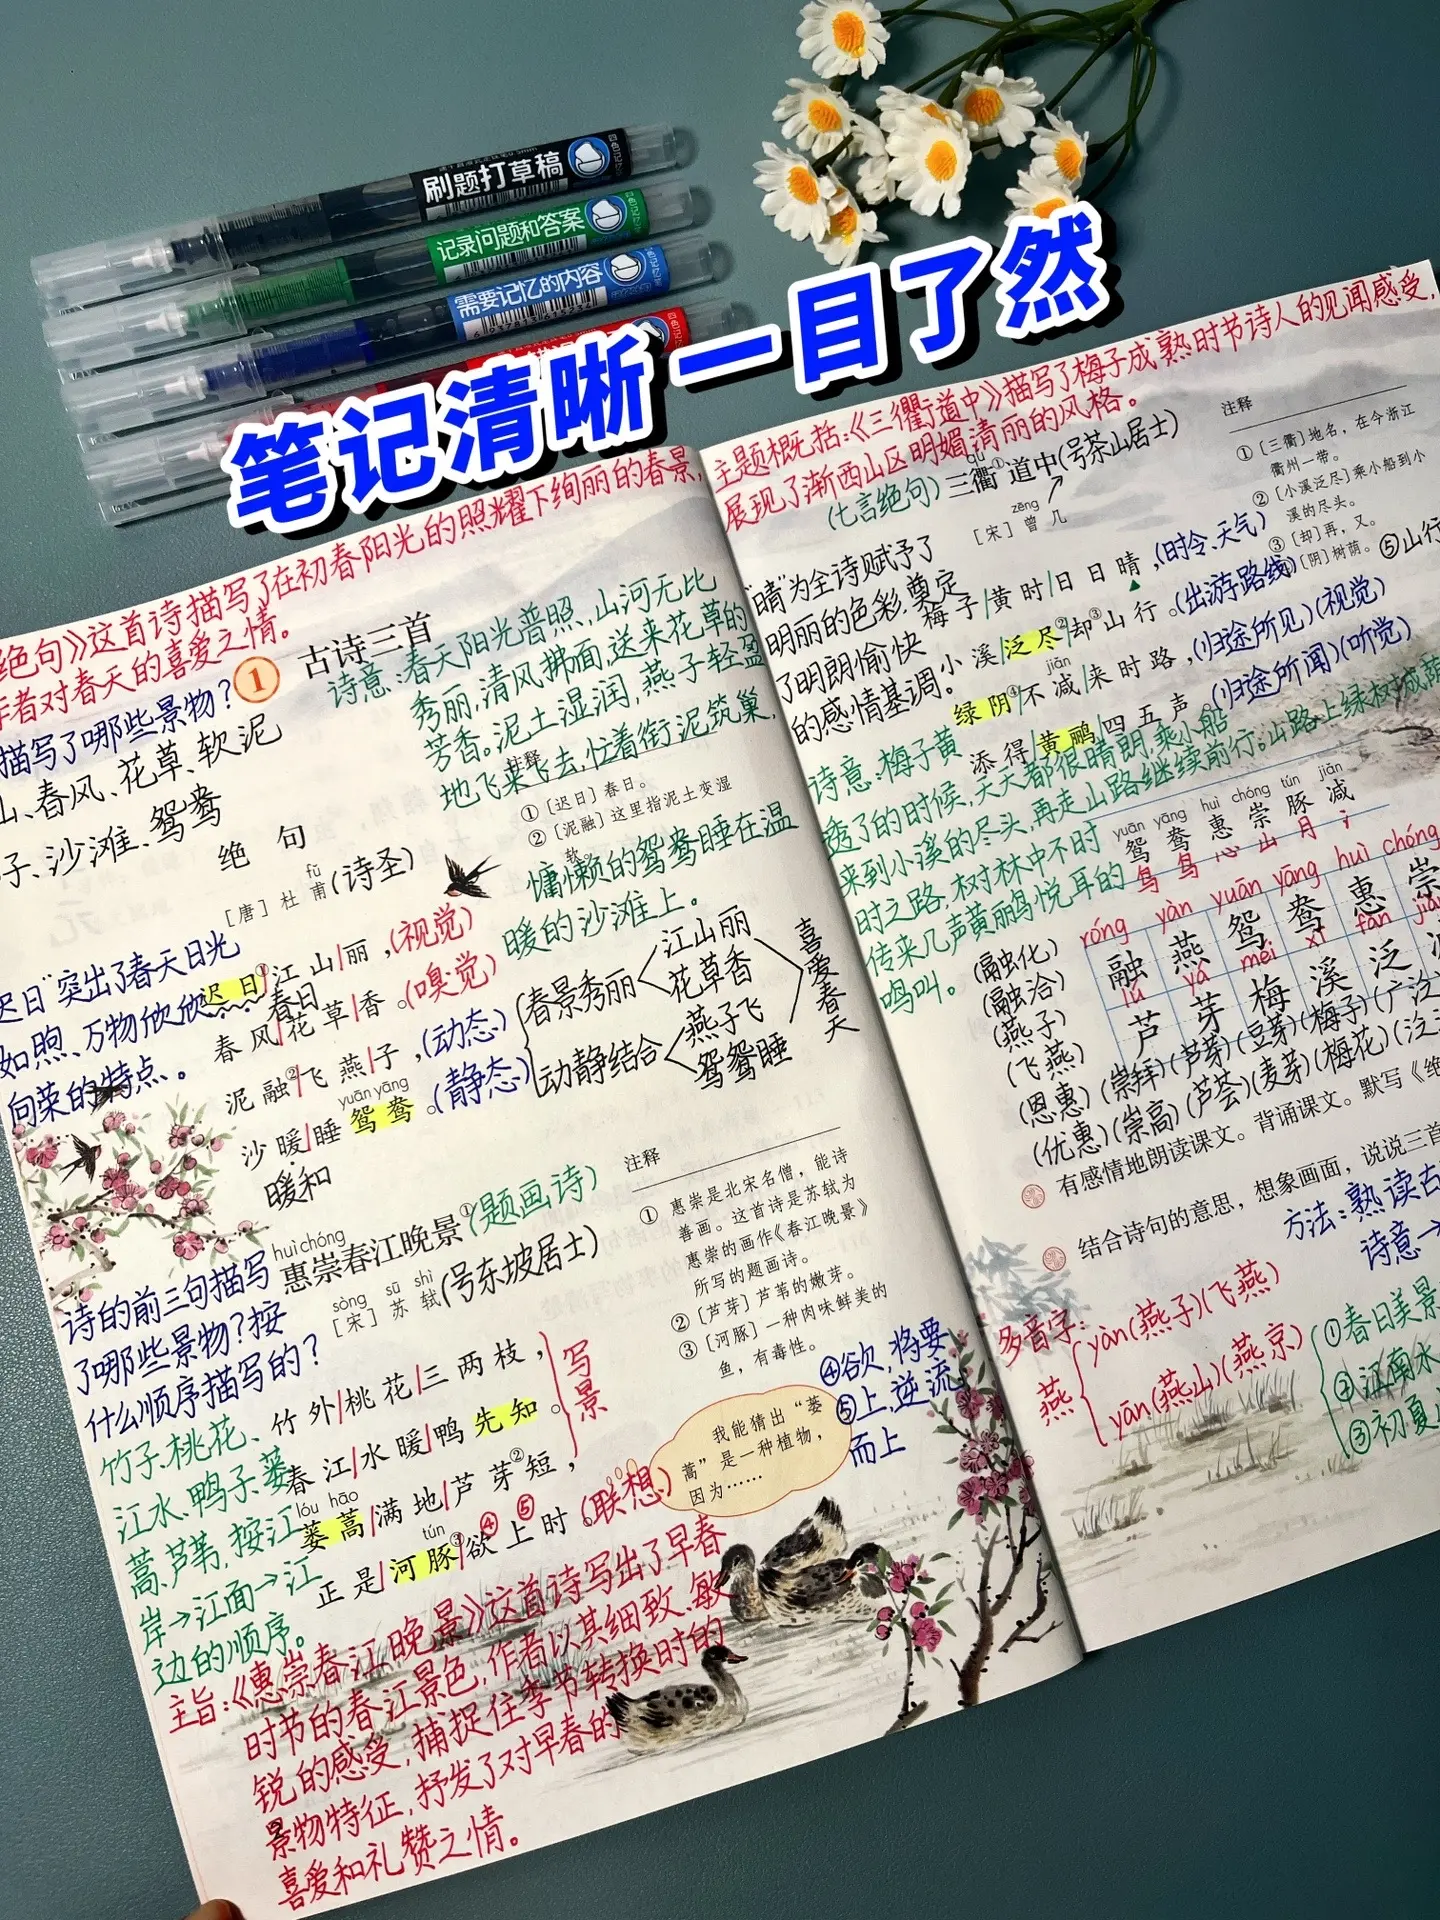 刷题打草稿
记录问题和答案
需要记忆的内容
笔记清晰 一目了然
绝句》这首诗描写了在初春阳光的照耀下绚丽的春景,
作者对春天的喜爱之情。
描写了哪些景物?
山、春风、花草、软泥
子、沙滩、鸳鸯
1
古诗三首
诗意:春天阳光普照,山河无比
秀丽,清风拂面,送来花草的
芳香。泥土湿润,燕子轻盈
地飞来飞去,忙着衔泥筑巢,
慵懒的鸳鸯睡在温
暖的沙滩上。
注释
①[迟日]春日。
②[泥融]这里指泥土变湿
软。
绝句
fǔ
[唐]杜甫(诗圣)
迟日"突出了春天日光
如煦、万物欣欣
向荣的特点。
迟日①|江山|丽,(视觉)
春日
春风|花草|香。(嗅觉)
泥融②|飞燕|子,(动态)
yuān yāng
沙暖|睡鸳鸯。(静态)
暖和
春景秀丽
江山丽
花草香
动静结合
燕子飞
鸳鸯睡
喜爱春天
huì chóng
惠崇春江晚景①(题画诗)
sòng sū shì
[宋]苏轼(号东坡居士)
诗的前三句描写
了哪些景物?按
什么顺序描写的?
竹子、桃花、
江水、鸭子、蒌
蒿、芦苇,按江
岸→江面→江
边的顺序。
竹外|桃花|三两枝,
春江|水暖|鸭先知。
lóu hāo
蒌蒿|满地|芦芽②短,
tún
正是|河豚③|欲④上⑤时。(联想)
写景
注释
① 惠崇是北宋名僧,能诗
善画。这首诗是苏轼为
惠崇的画作《春江晚景》
所写的题画诗。
②[芦芽]芦苇的嫩芽。
③[河豚]一种肉味鲜美的
鱼,有毒性。
④欲,将要
⑤上,逆流
而上
我能猜出“蒌
蒿”是一种植物,
因为……
主旨:《惠崇春江晚景》这首诗写出了早春
时节的春江景色,作者以其细致、敏
锐的感受,捕捉住季节转换时的
景物特征,抒发了对早春的
喜爱和礼赞之情。
主题概括:《三衢道中》描写了梅子成熟时节诗人的见闻感受,
展现了浙西山区明媚清丽的风格。
(七言绝句)三衢①道中(号茶山居士)
qú
zēng
[宋]曾几
注释
①[三衢]地名,在今浙江
衢州一带。
②[小溪泛尽]乘小船到小
溪的尽头。
③[却]再,又。
[阴]树荫。
⑤山行
"晴"为全诗赋予了
明丽的色彩,奠定
了明朗愉快
的感情基调。
梅子|黄时|日日晴,(时令、天气)
小溪|泛尽②|却③山行。(出游路线)
jiǎn
绿阴④|不减|来时路,(归途所见)(视觉)
添得|黄鹂|四五声。(归途所闻)(听觉)
诗意:梅子黄
透了的时候,天天都很晴朗,乘小船
来到小溪的尽头,再走山路继续前行。山路上绿树成荫
时之路,树林中不时
传来几声黄鹂悦耳的
鸣叫。
yuān yāng huì chóng tún jiǎn
鸳鸯惠崇豚减
鸟 鸟 心 山 月 冫
róng yàn yuān yāng huì chóng
融燕鸳鸯惠崇
lú yá méi xī fàn jiǎn
芦芽梅溪泛
(融化)
(融洽)
(燕子)
(飞燕)
(恩惠)(崇拜)(芦芽)(豆芽)(梅子)(广泛)
(优惠)(崇高)(芦荟)(麦芽)(梅花)
有感情地朗读课文。背诵课文。默写《绝
结合诗句的意思,想象画面,说说三首
方法:熟读古
诗意→
多音字:
燕
yàn(燕子)(飞燕)
yān(燕山)(燕京)
①春日美景
②江南水
③初夏